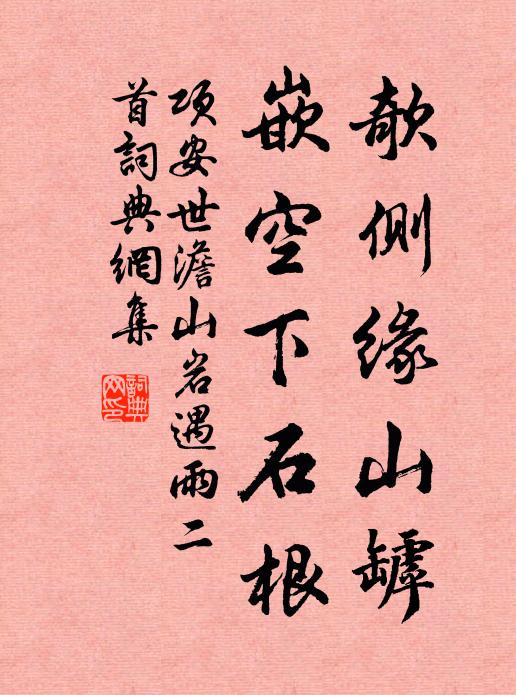 欹側緣山罅
嵌空下石根
項安世澹山岩遇雨二
首詞典網集
詞典
網印